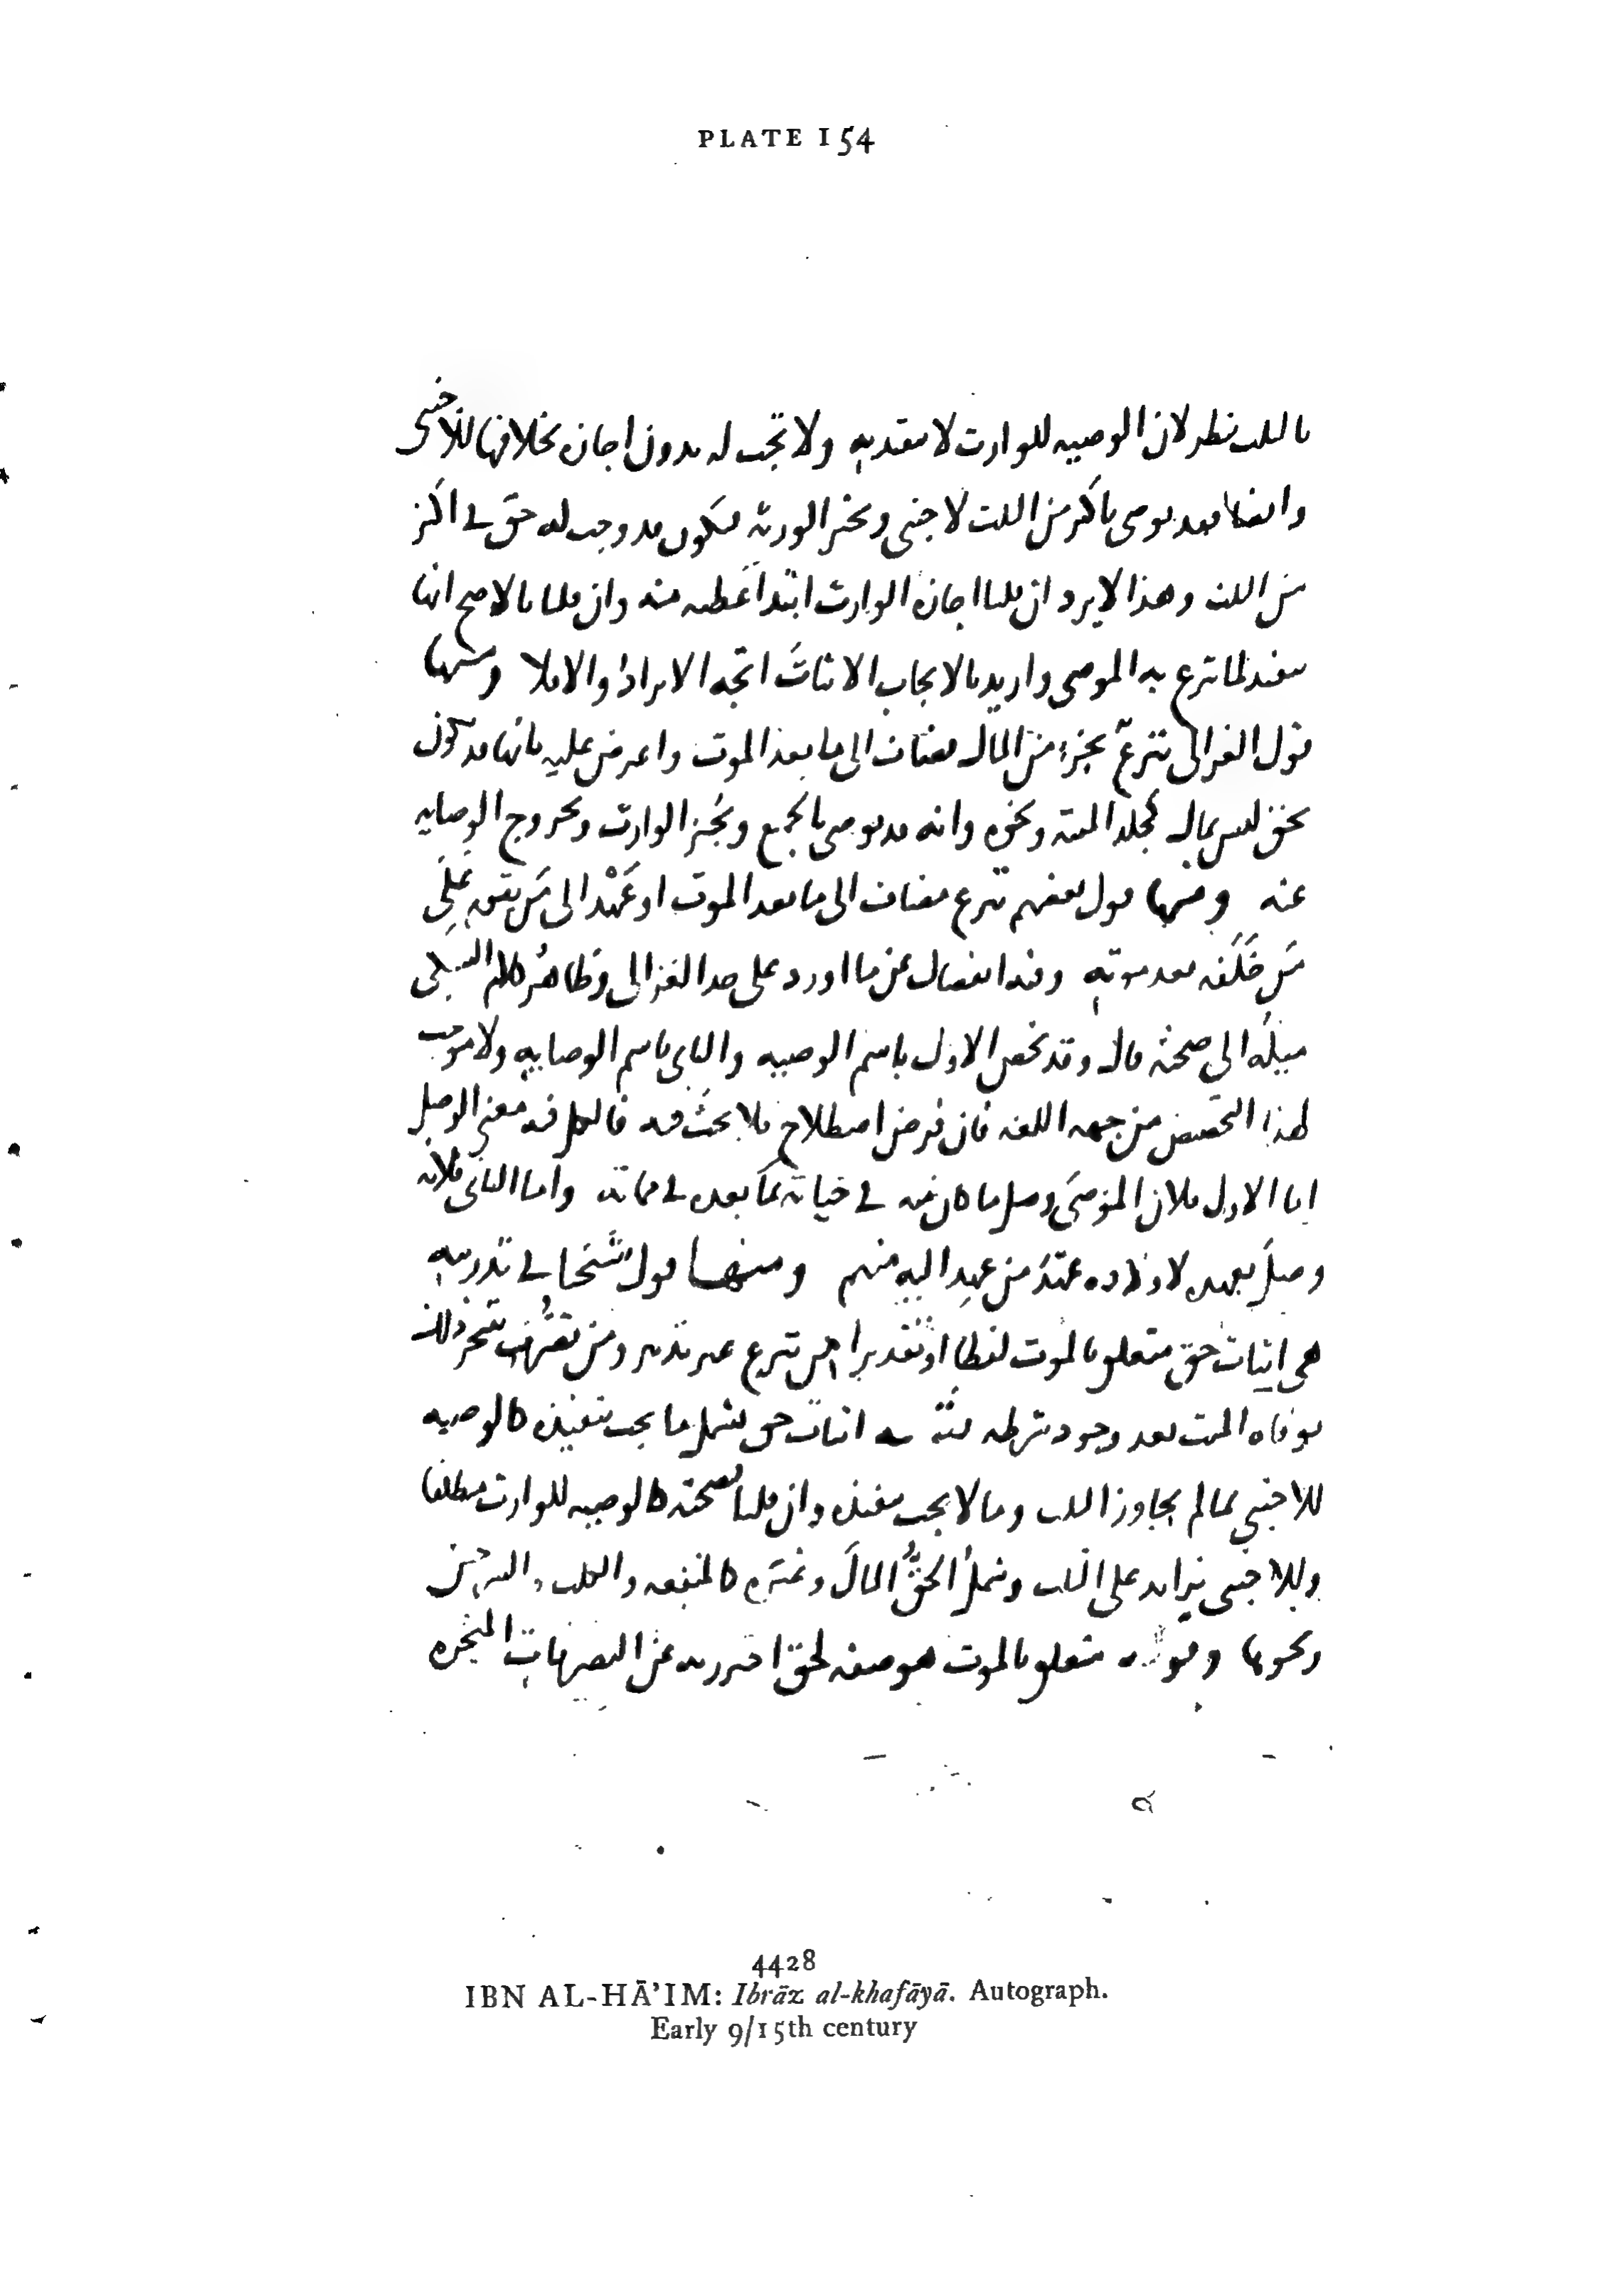 PLATE 154
بالثلث نظر لان الوصيه للوارث لا تتقيد به ولا تجب له بدون اجازه بخلافها للاجنبي
وايضا فقد يوصي باكثر من الثلث لاجنبي ويجيز الورثه فيكون قد وجب له حق في اكثر
من الثلث وهذا لا يرد ان قلنا اجازه الوارث ابتدا عطيه منه وان قلنا بالاصح انها
تنفيذ لما تبرع به الموصي واريد بالايجاب الاثبات اتجه الايراد والا فلا ومنها
قول الغزالي تبرع بجزء من المال مضاف الى ما بعد الموت واعترض عليه بانها قد تكون
بحق ليس بمال كجلد الميته ونحوه وانه قد يوصي بالجميع ويجيز الوارث وبخروج الوصايه
عنه ومنها قول بعضهم تبرع مضاف الى ما بعد الموت او عهد الى من يقوم على
من خلفه بعد موته وفيه انفصال عن ما اورد على حد الغزالي وظاهر كلام السبكي
ميله الى صحته قال وقد يخص الاول باسم الوصيه والثاني باسم الوصايه ولا موجب
لهذا التخصيص من جهه اللغه فان فرض اصطلاح فلا بحث فيه فالكل فيه معنى الوصل
اما الاول فلان الموصي وصل ما كان منه في حياته بما بعده في مماته واما الثاني فلانه
وصل بعهده لاولاده عهد من عهد اليه منهم ومنها قول شيخنا في تدريبه
هي اثبات حق متعلق بالموت لفظا او تقديرا اعم من تبرع غير تدبير ومن تصرف يتنجز ذلك
بوفاه الميت بعد وجود شرطه اثبات حق يشمل ما يجب تنفيذه كالوصيه
للاجنبي بما لم يجاوز الثلث وما لا يجب تنفيذه وان قلنا بصحته كالوصيه للوارث مطلقا
وللاجنبي بزايد على الثلث ويشمل الحق المال وغيره كالمنفعه والكلب والسرجين
ونحوها وقوله متعلق بالموت هو صفه لحق احترز به عن التصرفات المنجزه
4428
IBN AL-HĀ’IM: Ibrāz al-khafāyā. Autograph.
Early 9/15th century